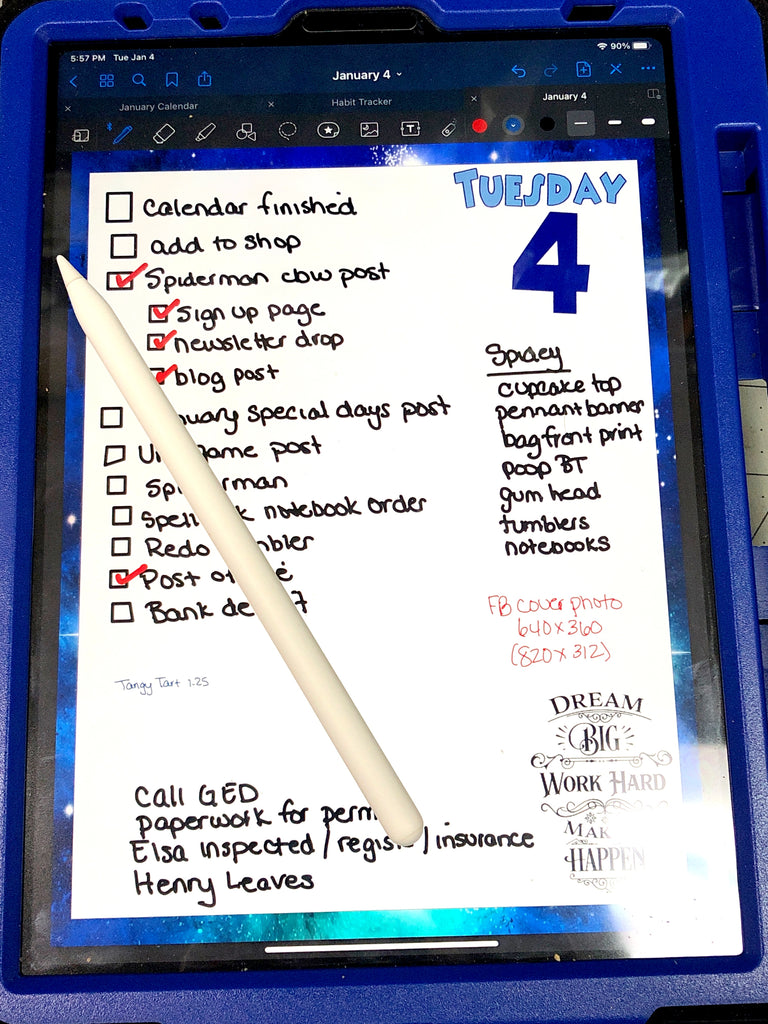 5:57 PM Tue Jan 4
90%
January 4
January Calendar
Habit Tracker
January 4
TUESDAY
4
Calendar finished
add to shop
Spiderman cbw post
Sign up page
newsletter drop
blog post
special days post
post
notebook order
Redo
Post
Bank
Spidey
cupcake top
pennant banner
bag front print
poop BT
gum head
tumblers
notebooks
FB cover photo
640x360
(820x312)
Tangy Tart 1.25
DREAM
BIG
WORK HARD
HAPPEN
Call GED
paperwork for
Elsa inspected / / insurance
Henry Leaves